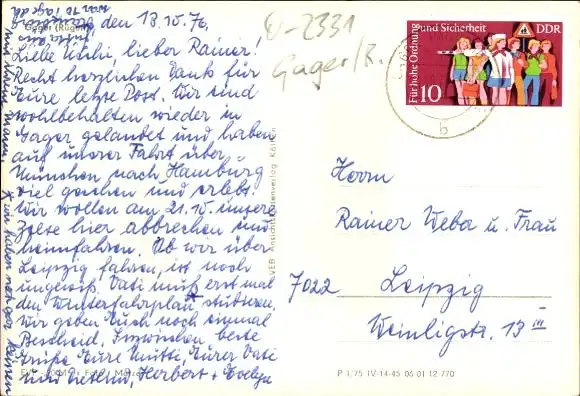 Gager (Rügen)
den 13.10.76
Liebe Uschi, lieber Rainer!
Recht herzlichen Dank für
Eure letzte Post. Wir sind
wohlbehalten wieder in
Gager gelandet und haben
auf unserer Fahrt über
München nach Hamburg
viel gesehen und erlebt.
Wir wollen am 21.10. unsere
Zelte hier abbrechen und
heimfahren. Ob wir über
Leipzig fahren, ist noch
ungewiß. Vati muß erst mal
den Winterfahrplan studieren.
Wir geben Euch noch einmal
Bescheid. Inzwischen beste
Grüße Eure Mutti, Eurer Vati
und Herbert + Evelyn
x wir haben noch gar keinen
VEB Ansichtskartenverlag Köthen
O-2331
Gager/R.
Für hohe Ordnung und Sicherheit
DDR
10
b
Herrn
Rainer Weba u. Frau
7022 Leipzig
Weinligstr. 13 III
P 1/75 IV-14-45 06 01 12 770